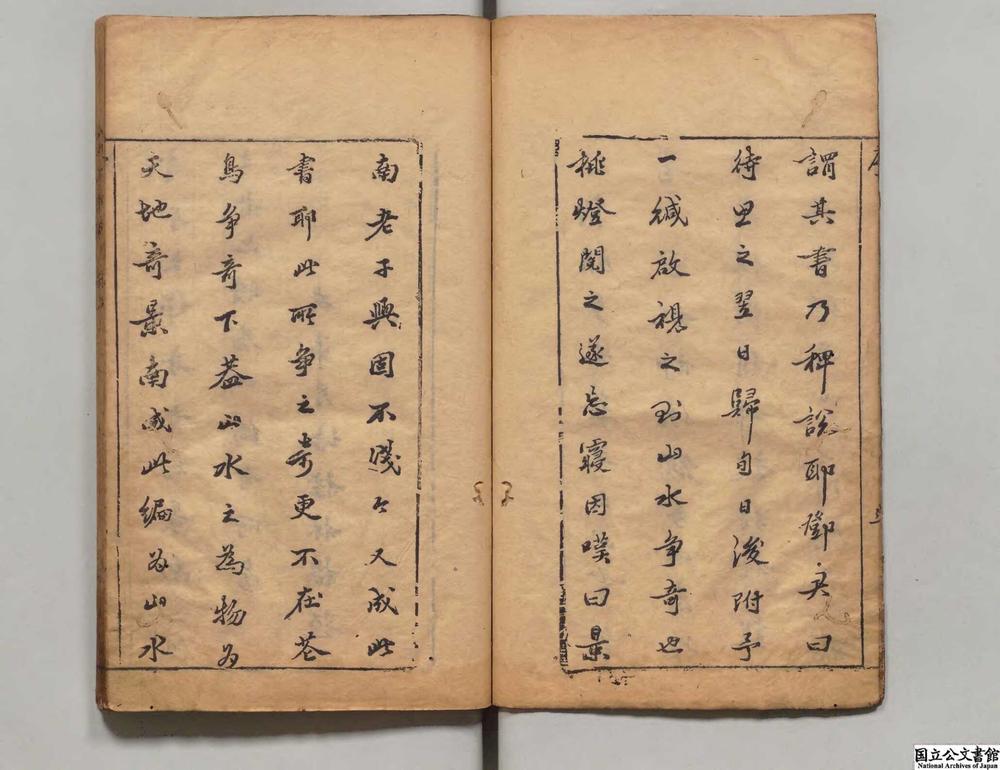 謂其書乃稗說耶鄧君曰
待思之翌日歸旬日後附予
一緘啟視之則山水爭奇也
挑燈閱之遂忘寢因嘆曰景
南老子興固不淺今又成此
書耶此所爭之奇更不在花
鳥爭奇下蓋山水之為物為
天地奇景南成此編為山水
国立公文書館
National Archives of Japan